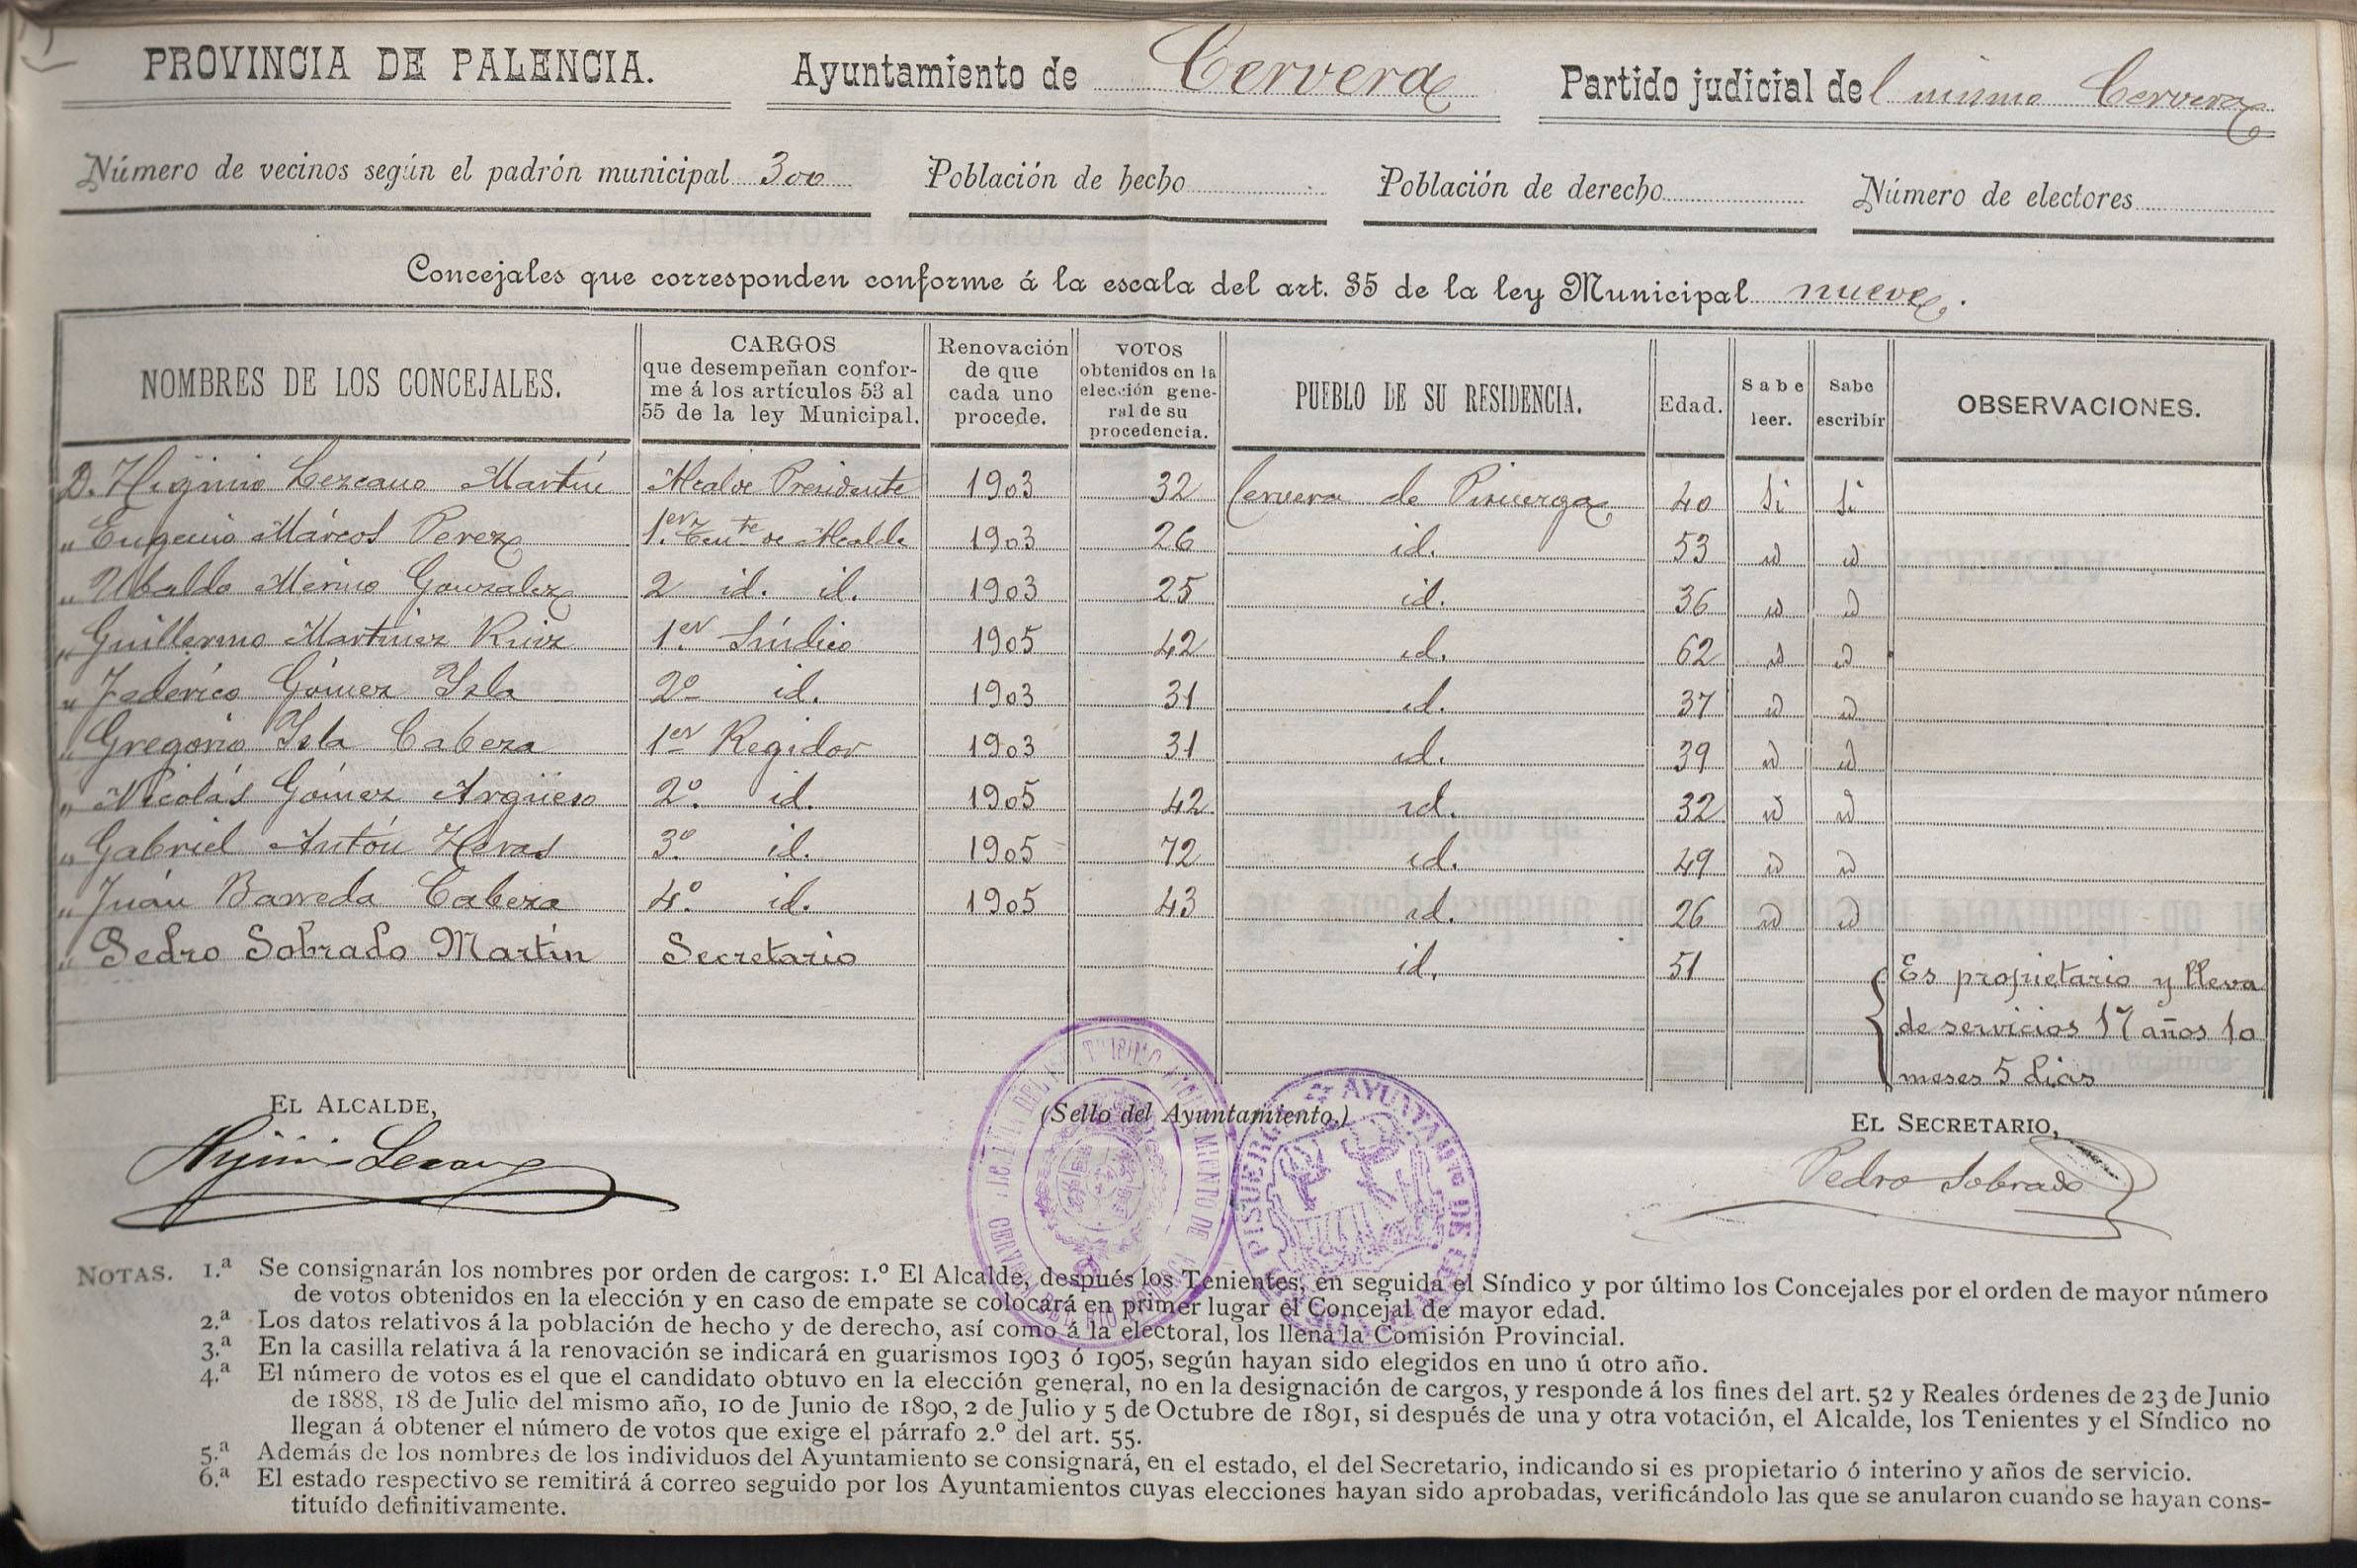 PROVINCIA DE PALENCIA. Ayuntamiento de Cervera Partido judicial del mismo Cervera
Número de vecinos según el padrón municipal 300 Población de hecho Población de derecho Número de electores
Concejales que corresponden conforme á la escala del art. 35 de la ley Municipal nueve.
NOMBRES DE LOS CONCEJALES. CARGOS que desempeñan conforme á los artículos 53 al 55 de la ley Municipal. Renovación de que cada uno procede. VOTOS obtenidos en la elección general de su procedencia. PUEBLO DE SU RESIDENCIA. Edad. Sabe leer. Sabe escribir OBSERVACIONES.
D. Higinio Lezcano Martín Alcalde Presidente 1903 32 Cervera de Pisuerga 40 Si Si
" Eugenio Márcos Perez 1.er Tente de Alcalde 1903 26 id. 53 id id
" Ubaldo Merino Gonzalez 2 id. id. 1903 25 id. 36 id id
" Guillermo Martinez Ruiz 1.er Síndico 1905 42 id. 62 id id
" Federico Gómez Isla 2º id. 1903 31 id. 37 id id
" Gregorio Isla Cabeza 1er Regidor 1903 31 id. 39 id id
" Nicolás Gómez Argüeso 2º. id. 1905 42 id. 32 id id
" Gabriel Antón Heras 3º. id. 1905 72 id. 49 id id
" Juan Barreda Cabeza 4º. id. 1905 43 id. 26 id id
" Pedro Sobrado Martín Secretario id. 51 Es propietario y lleva
de servicios 17 años 10
meses 5 dias
EL ALCALDE, (Sello del Ayuntamiento.) EL SECRETARIO,
Higinio Lezcano Pedro Sobrado
AYUNTAMTO DE
PISUERGA
NOTAS. 1.ª Se consignarán los nombres por orden de cargos: 1.º El Alcalde, después los Tenientes, en seguida el Síndico y por último los Concejales por el orden de mayor número
de votos obtenidos en la elección y en caso de empate se colocará en primer lugar el Concejal de mayor edad.
2.ª Los datos relativos á la población de hecho y de derecho, así como á la electoral, los llena la Comisión Provincial.
3.ª En la casilla relativa á la renovación se indicará en guarismos 1903 ó 1905, según hayan sido elegidos en uno ú otro año.
4.ª El número de votos es el que el candidato obtuvo en la elección general, no en la designación de cargos, y responde á los fines del art. 52 y Reales órdenes de 23 de Junio
de 1888, 18 de Julio del mismo año, 10 de Junio de 1890, 2 de Julio y 5 de Octubre de 1891, si después de una y otra votación, el Alcalde, los Tenientes y el Síndico no
llegan á obtener el número de votos que exige el párrafo 2.º del art. 55.
5.ª Además de los nombres de los individuos del Ayuntamiento se consignará, en el estado, el del Secretario, indicando si es propietario ó interino y años de servicio.
6.ª El estado respectivo se remitirá á correo seguido por los Ayuntamientos cuyas elecciones hayan sido aprobadas, verificándolo las que se anularon cuando se hayan cons-
tituído definitivamente.